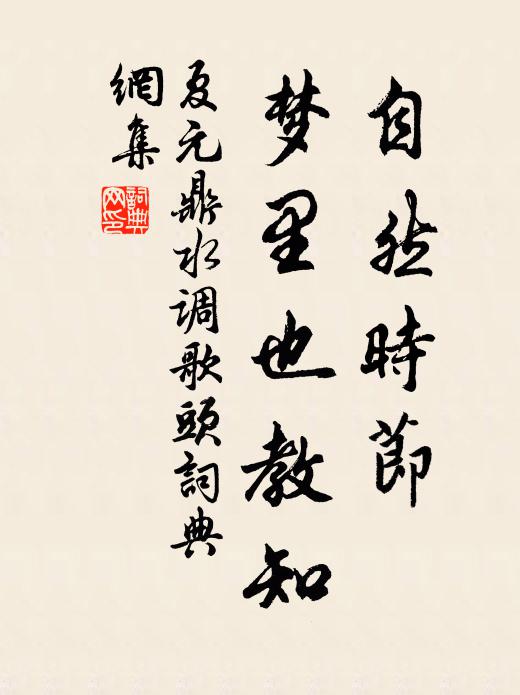 自然時節
梦里也教知
夏元鼎水调歌頭詞典
網集
詞典
网印